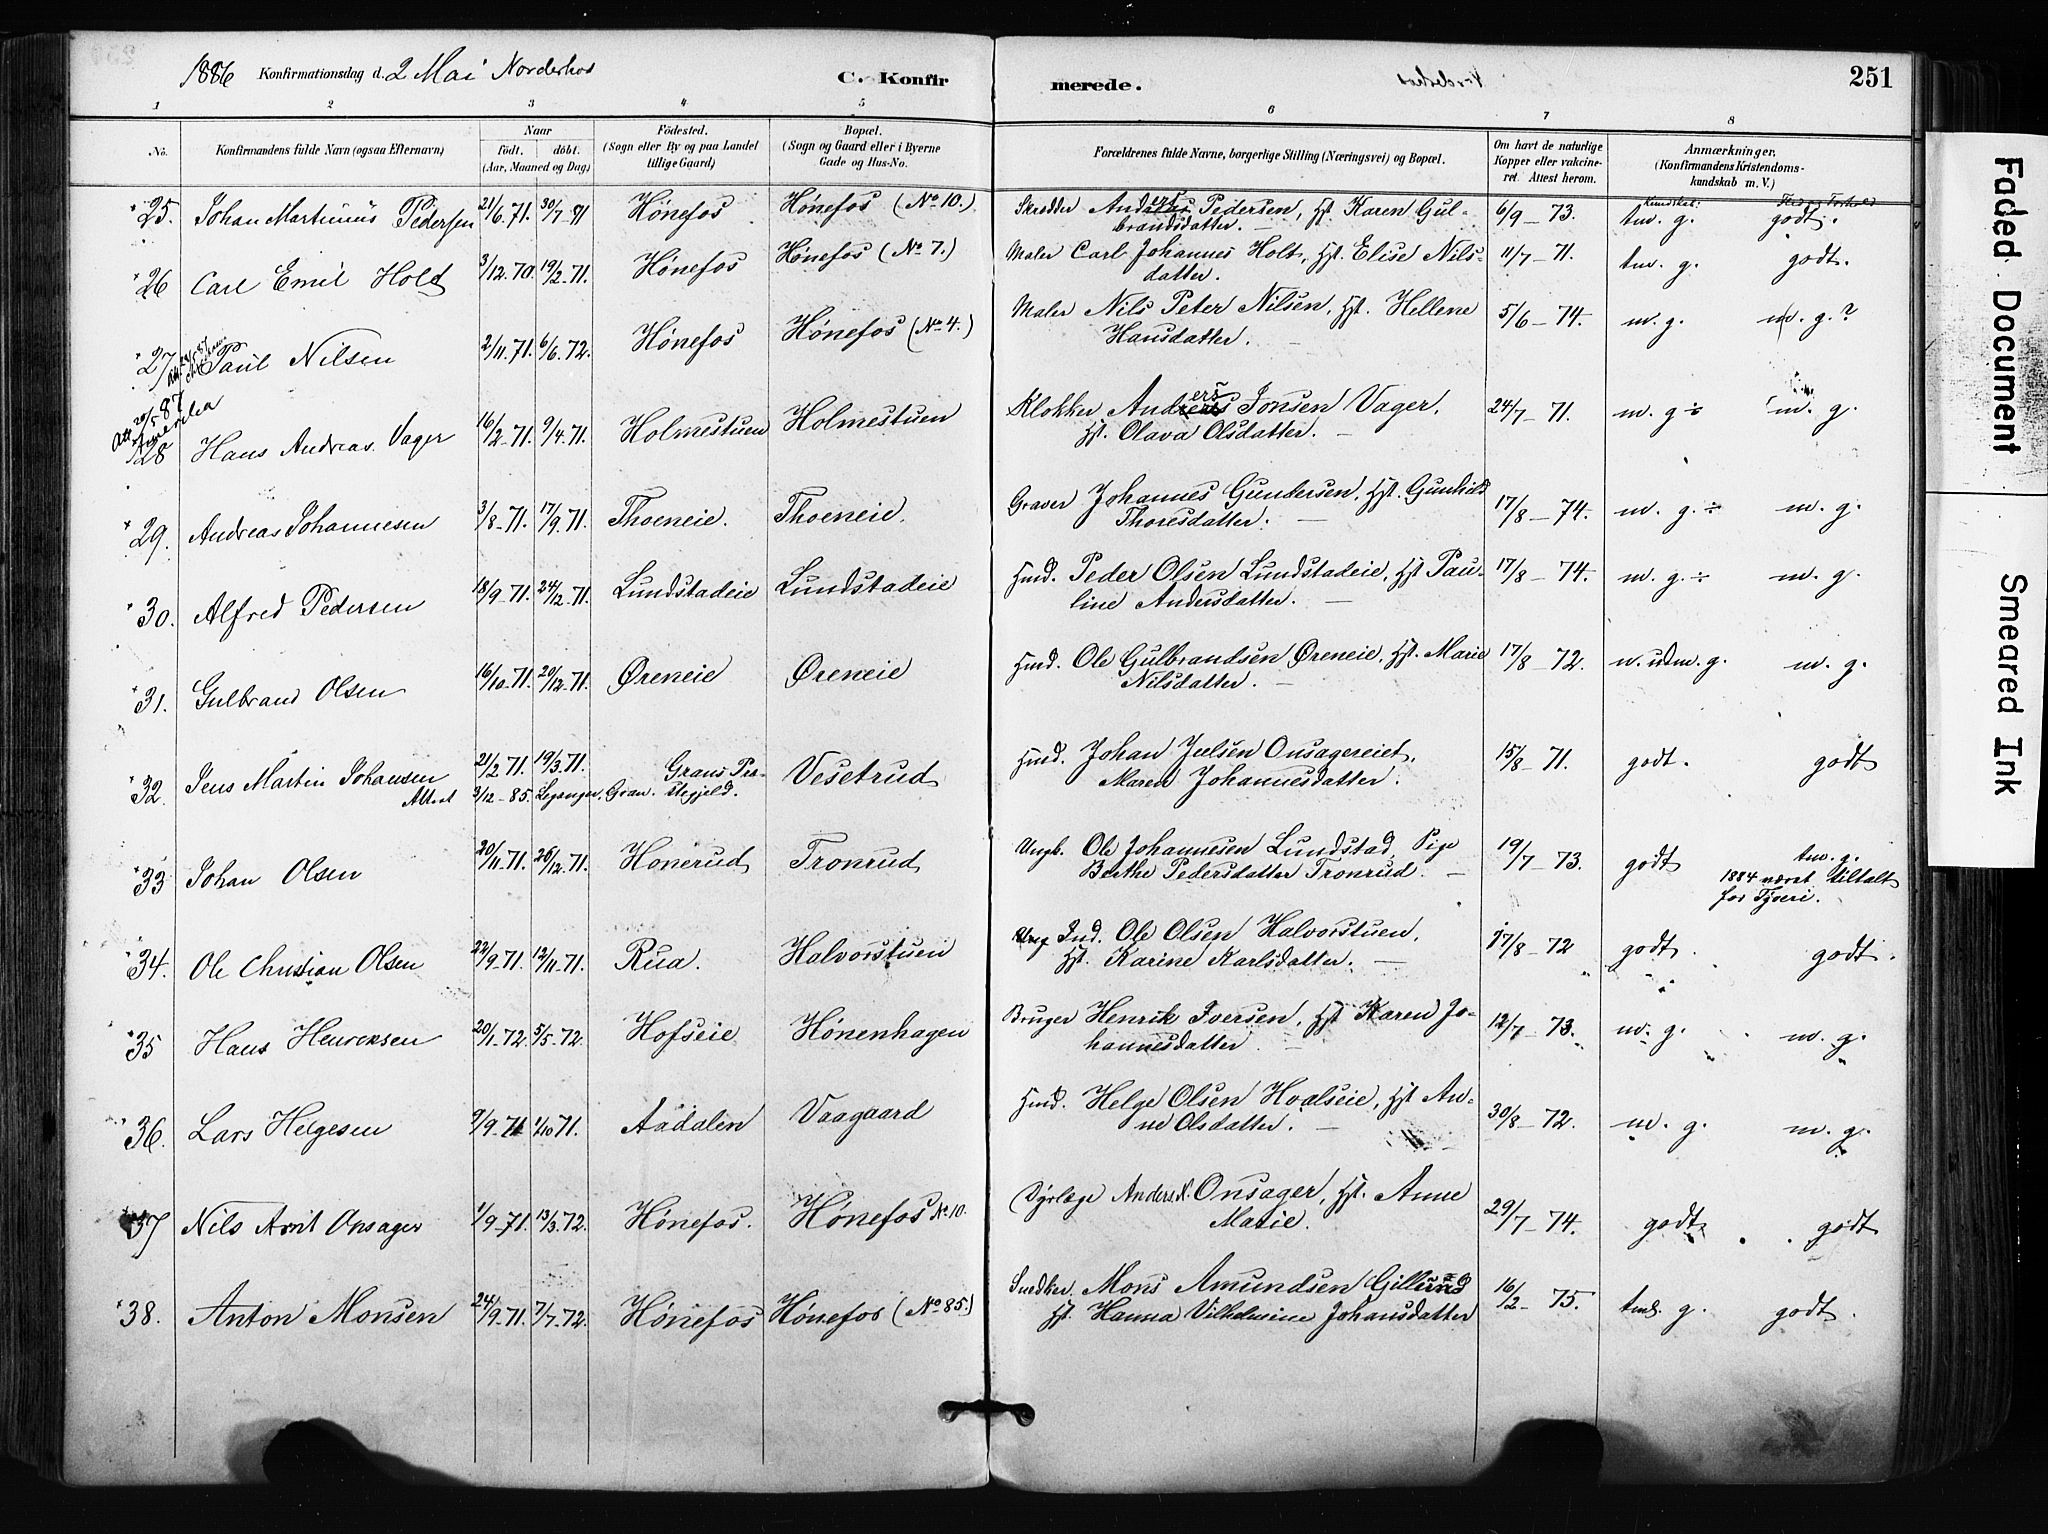 1886 Konfirmationsdag d. 2 Mai Norderhov C. Konfirmerede. 251
1 2 3 4 5 6 7 8
No. Konfirmandens fulde Navn (ogsaa Efternavn) Naar født. døbt. (Aar, Maaned og Dag) Fødested. (Sogn eller By og paa Landet tillige Gaard) Bopæl. (Sogn og Gaard eller i Byerne Gade og Hus-No. Forældrenes fulde Navne, borgerlige Stilling (Næringsvei) og Bopæl. Om havt de naturlige Kopper eller vakcineret. Attest herom. Anmærkninger, (Konfirmandens Kristendomskundskab m. V.)
Kundskab: Flid og Forhold
25. Johan Martinius Pedersen 21/6.71 30/7-71 Hønefos Hønefos (No 10.) Skrædder Anders Pedersen, Hst. Karen Gulbrandsdatter. 6/9-73. tm. g. godt.
26 Carl Emil Hold 3/12.70. 19/2-71. Hønefos Hønefos (No 7.) Maler Carl Johannes Holt, Hst. Elise Nilsdatter. 11/7-71. tm. g. godt.
27 Paul Nilsen 2/11.71. 6/6.72. Hønefos Hønefos (No 4.) Maler Nils Peter Nilsen, Hst. Hellene Hansdatter. 5/6-74. m. g. m. g.?
Att. 20/5 87 Amerika
28 Hans Andreas Vager 16/2-71. 9/4.71. Holmestuen Holmestuen Klokker Anders Jonsen Vager, Hst. Olava Olsdatter. 24/7-71. m. g ÷ m. g.
29. Andreas Johannesen 3/8-71. 17/9.71. Thoeneie. Thoeneie. Graver Johannes Gundersen, Hst. Gunhild Thoresdatter. 17/8-74. m. g. ÷ m. g.
30. Alfred Pedersen 18/9-71. 24/12-71. Lundstadeie Lundstadeie Hmd. Peder Olsen Lundstadeie, Hst Pauline Andersdatter. 17/8-74. m. g. ÷ m. g.
31. Gulbrand Olsen 16/10-71. 20/12.71. Øreneie Øreneie Hmd. Ole Gulbrandsen Øreneie, Hst. Marie Nilsdatter. 17/8-72. n. udm. g. m. g.
32. Jens Martin Johansen 21/2.71. 19/3.71. Grans Præstegjeld. Vesetrud Hmd. Johan Juelsen Onsagereiet, Maren Johannesdatter. 15/8-71. godt. godt
Attest 3/12-85. Gran.
33 Johan Olsen 20/11.71. 26/12.71. Honerud Tronrud Ungk. Ole Johannesen Lundstad, Pige Berthe Pedersdatter Tronrud. 19/7-73. godt tm. g. 1884 været tiltalt for Tyveri.
34. Ole Christian Olsen 22/9-71. 12/11-71. Rua. Halvorstuen Ind. Ole Olsen Halvorstuen, Hst. Karine Karlsdatter. 17/8-72 godt. godt.
35 Hans Henreksen 20/1-72. 5/5-72. Hofseie Hønenhagen Bruger Henrik Iversen, Hst Karen Johannesdatter. 12/7-73. m. g. m. g.
36. Lars Helgesen 9/9.71 1/10 71. Aadalen Vaagaard Hmd. Helge Olsen Hvalseie, Hst Anne Olsdatter. 30/8-72. m. g. m. g.
37 Nils Arnt Onsager 1/9-71. 13/3.72. Hønefos. Hønefos No 10. Dyrlæge Anders N. Onsager, Hst. Anne Marie. 29/7-74. godt godt
38. Anton Monsen 24/9.71. 7/7-72. Hønefos Hønefos (No 85.) Snedker Mons Amundsen Gillund Hst. Hanna Vilhelmine Johansdatter 16/2-75. tml. g. godt.
Faded Document
Smeared Ink